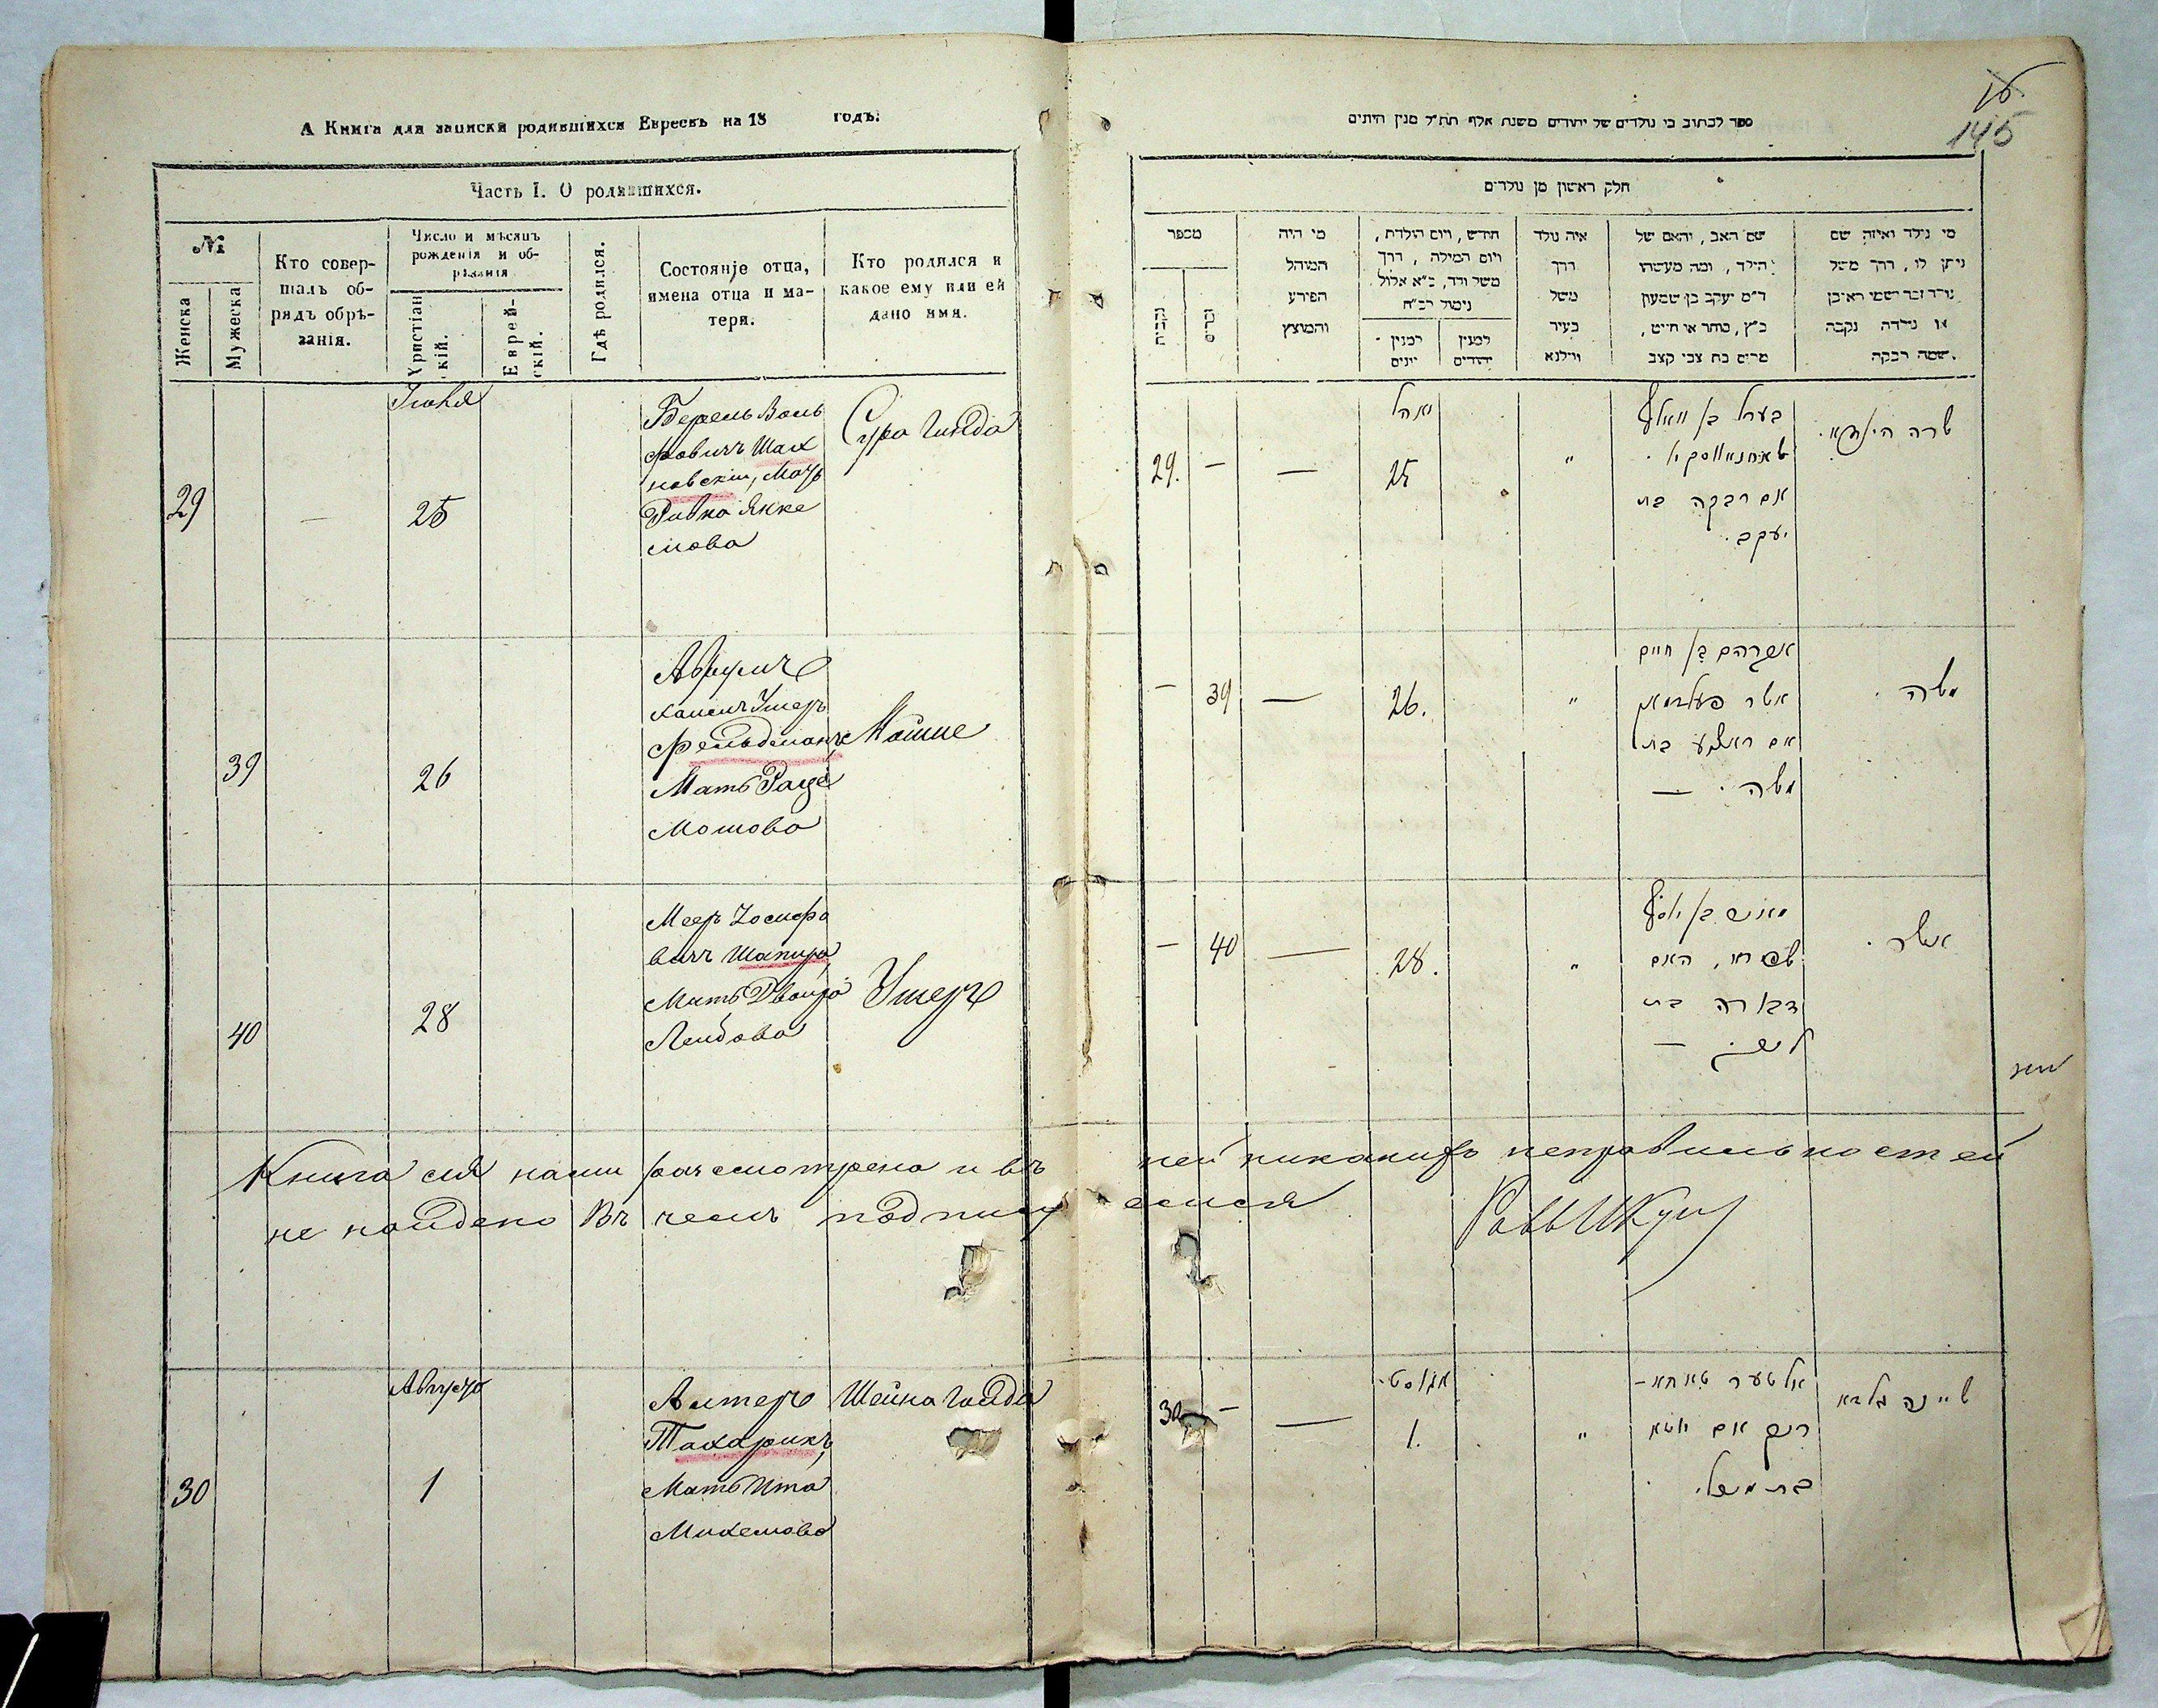 А Книга для записки родившихся Евреевъ на 18 годъ.
Часть I. О родившихся.
№
Женска
Мужеска
Кто совер-
шалъ об-
рядъ обрѣ-
занія.
Число и мѣсяцъ
рожденія и об-
рѣзанія
Христіан
скій.
Еврей-
скій.
Гдѣ родился.
Состоянје отца,
имена отца и ма-
тери.
Кто родился и
какое ему или ей
дано имя.
Іюля
29
—
25
Берель Воль
фовичъ Шах
новскій, Мать
Ривка Янке
лова
Сура Гинда
39
26
Аврумъ
Хаимъ Ушеръ
Фельдманъ
Мать Раця
Мошова
Мошше
40
28
Меер Іосифо
вичъ Шапиро
Мать Двойра
Лейбова
Ушеръ
Книга сія нами разсмотрена и въ ней никакихъ неправильностей
не найдено въ чемъ подписуемся
Августа
30
1
Алтеръ
Тахарикъ,
Мать Ита
Михелова
Шейна Голда
16
145
ספר לכתוב בי נולדים של יהודים משנת אלף תת״ל מנין היתים
חלק ראשון מן נולדים
מספר
נקבות
זכרים
מי היה
המוהל
הפורע
והמוצץ
חודש, ויום הולדת,
ויום המילה, דרך
משל ורד, כ״א אלול
נימול רב״ח
למנין
יהודים
למנין
יונים
איה נולד
דרך
משל
בעיר
ווילנא
שם האב, והאם של
הילד, ומה מעשהו
ד״מ יעקב בן שמעון
כ״ץ, סוחר או חייט,
מרים בת צבי קצב
מי נילד ואיזה שם
ניתן לו, דרך משל
נולד זכר ושמו ראובן
או נולדה נקבה
ושמה רבקה.
יואל
29.
—
—
25
"
בערל בן וואלף
שאחנאווסקי
אם רבקה בת
יעקב.
שרה הינדא.
—
39
—
26.
"
אברהם בן חיים
אשר פעלדמאן
אם ראצע בת
משה. —
משה.
—
40
—
28.
"
מאיר בן יוסף
שפירו, האם
דבורה בת
ליב —
אשר.
אגוסט.
30
—
—
1.
"
אלטער טאחא-
ריק אם יטא
בת מיכל.
שיינה גלדא